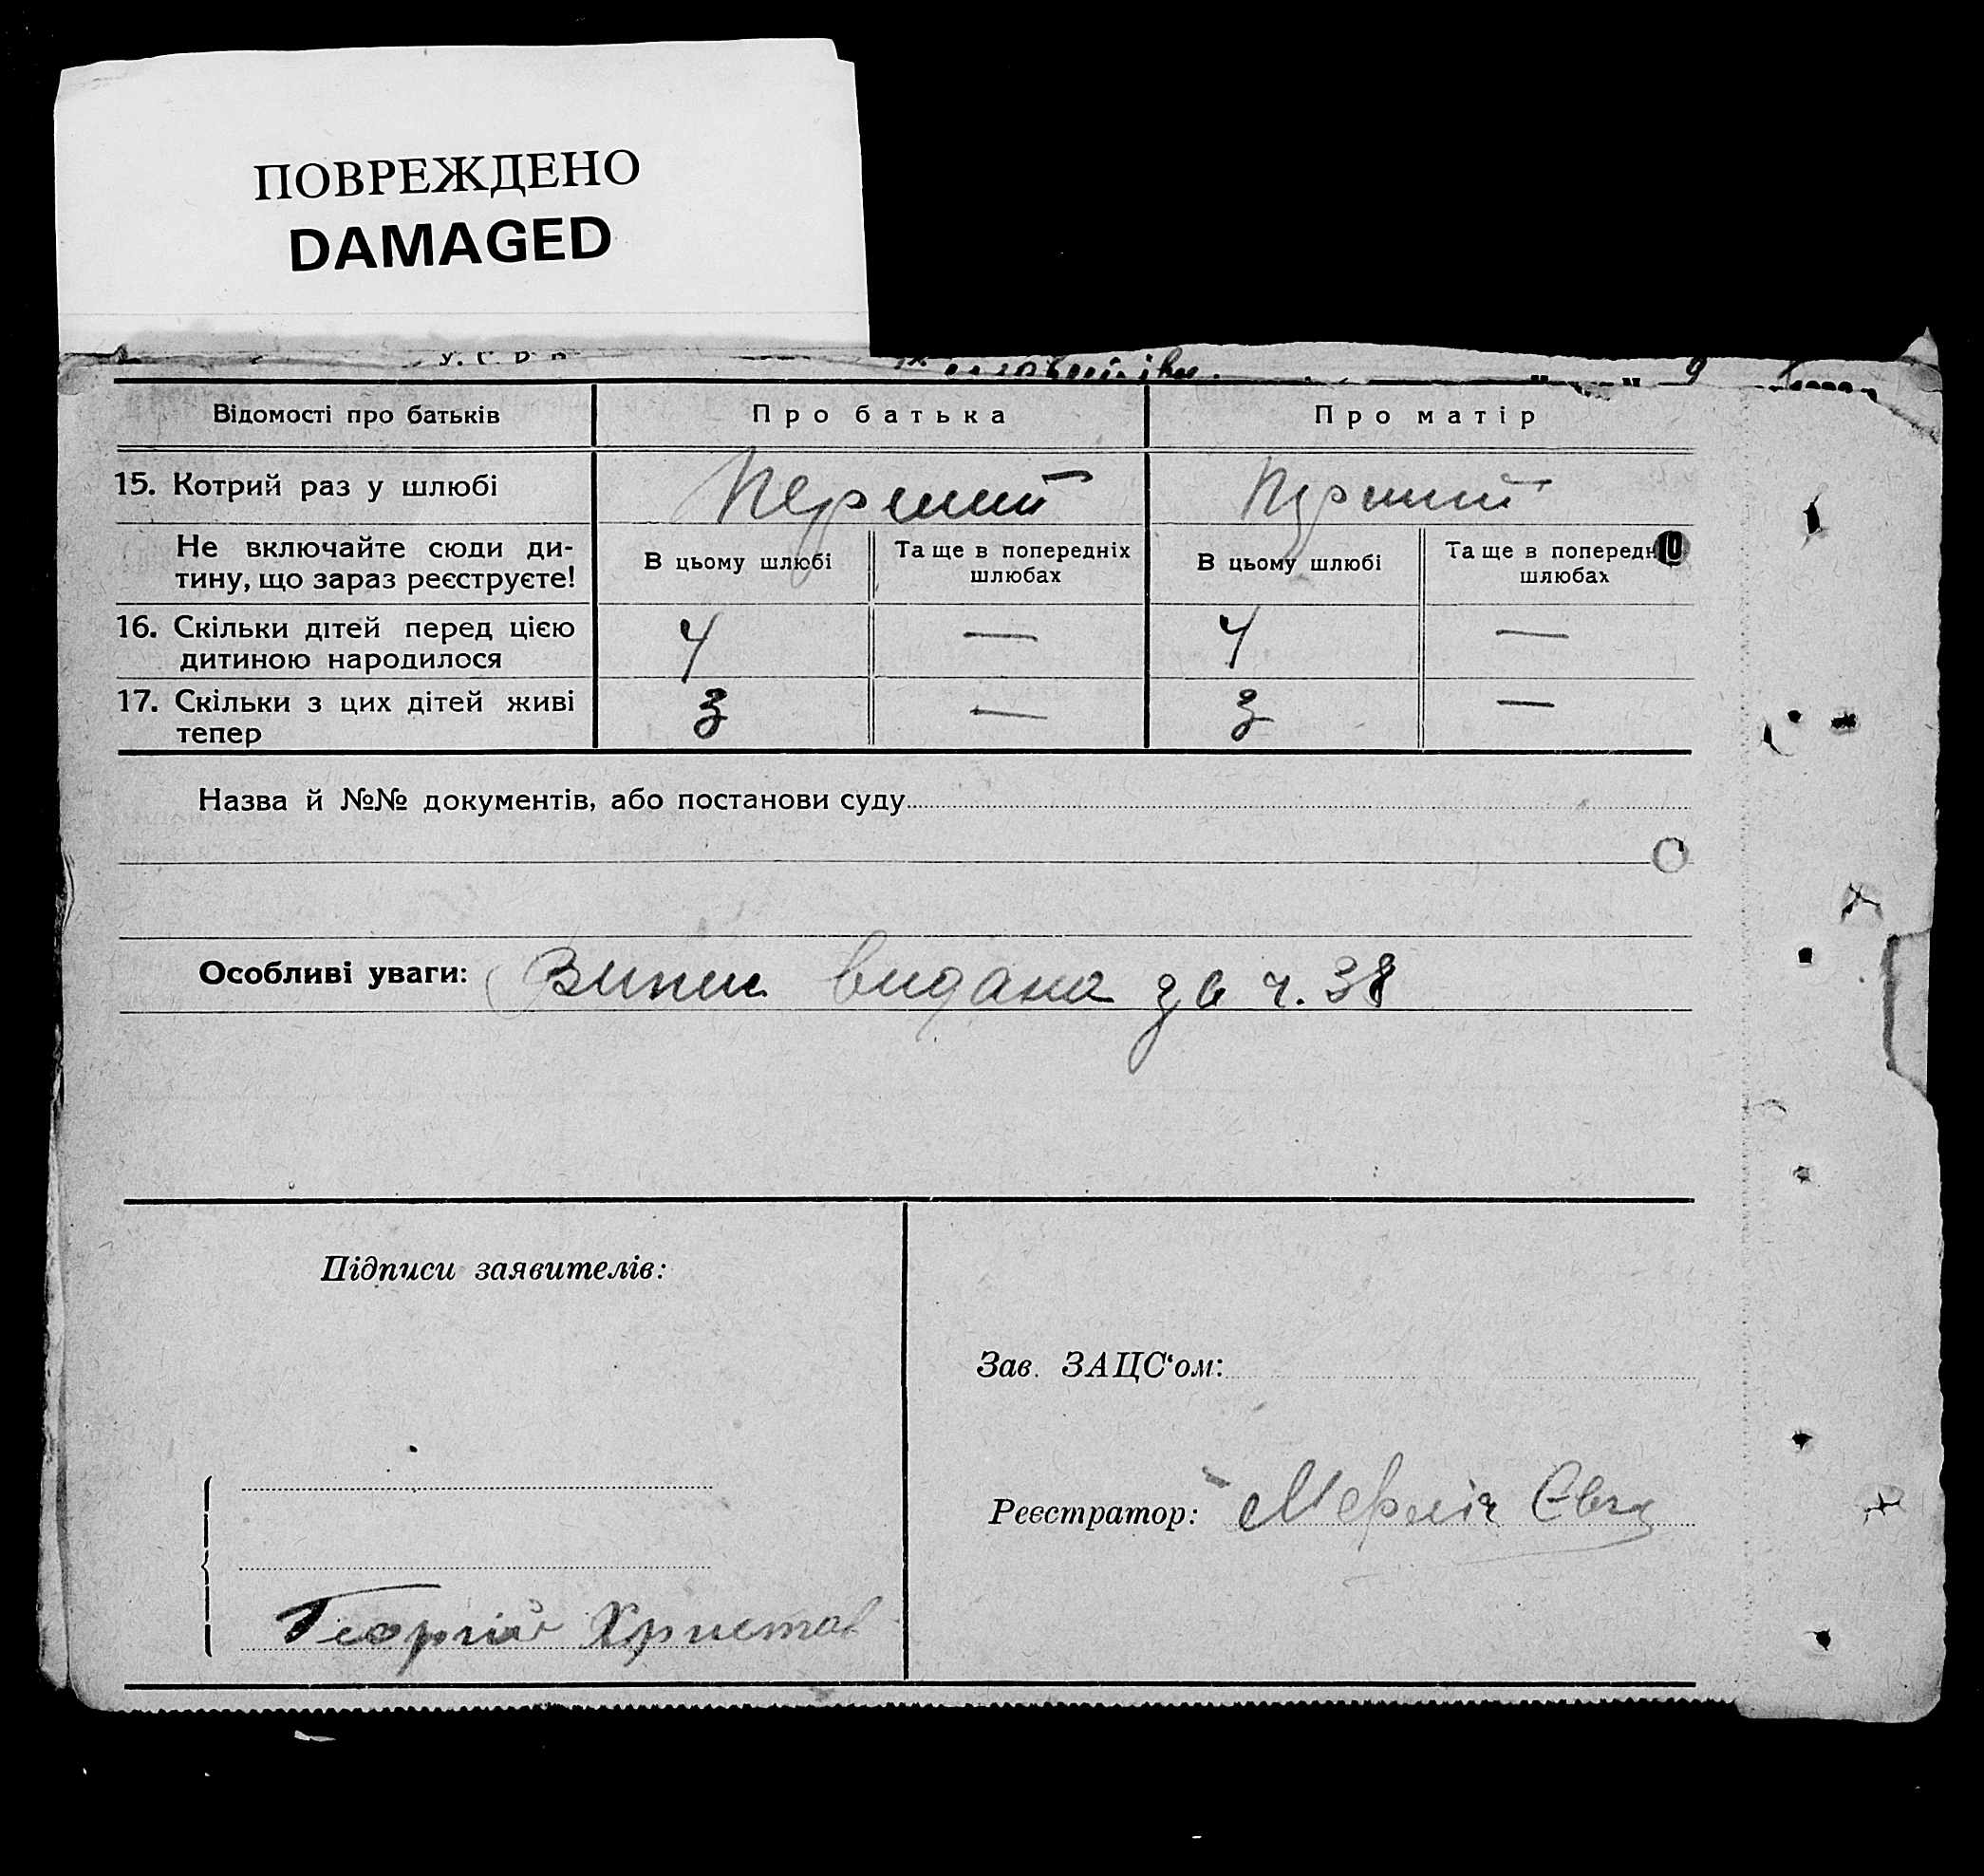 ПОВРЕЖДЕНО
DAMAGED
Відомості про батьків
Про батька
Про матір
15. Котрий раз у шлюбі
Перший
Перший
Не включайте сюди ди-
тину, що зараз реєструєте!
В цьому шлюбі
Та ще в попередніх
шлюбах
В цьому шлюбі
Та ще в
шлюбах
16. Скільки дітей перед цією
дитиною народилося
4
—
4
—
17. Скільки з цих дітей живі
тепер
3
—
3
—
Назва й №№ документів, або постанови суду
Особливі уваги: видана за ч. 38
Підписи заявителів:
Зав. ЗАЦС‘ом:
Реєстратор:
Георгій Христов